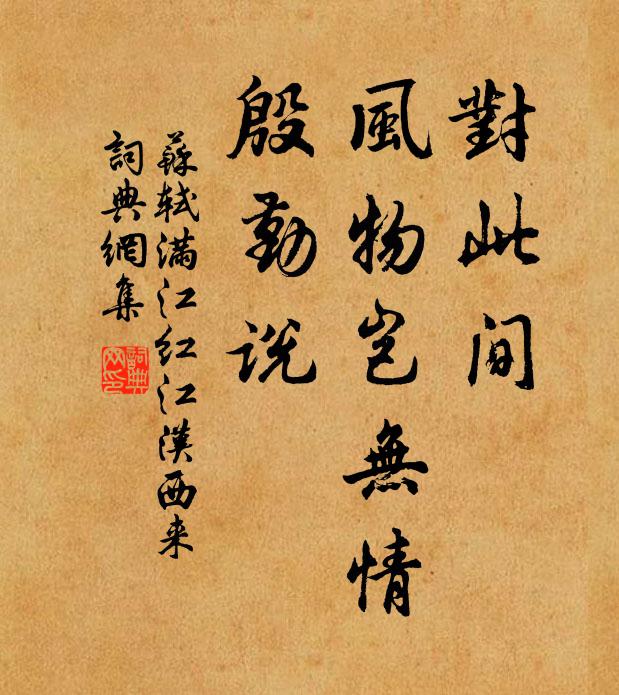 對此間
風物豈無情
殷勤説
蘇軾滿江红江漢西来
詞典網集
詞典
网印